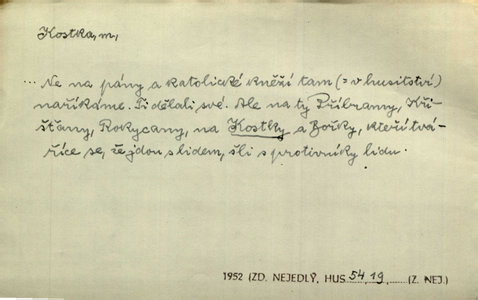 Kostka, m,
... Ne na pány a katolické kněží tam (= v husitství)
naříkáme. Ti dělali své. Ale na ty Příbramy, Kři-
šťany, Rokycany, na Kostky a Bořky, kteří tvá-
říce se, že jdou s lidem, šli s protivníky lidu.
1952 (ZD. NEJEDLÝ, HUS 54, 19, (Z. NEJ.)